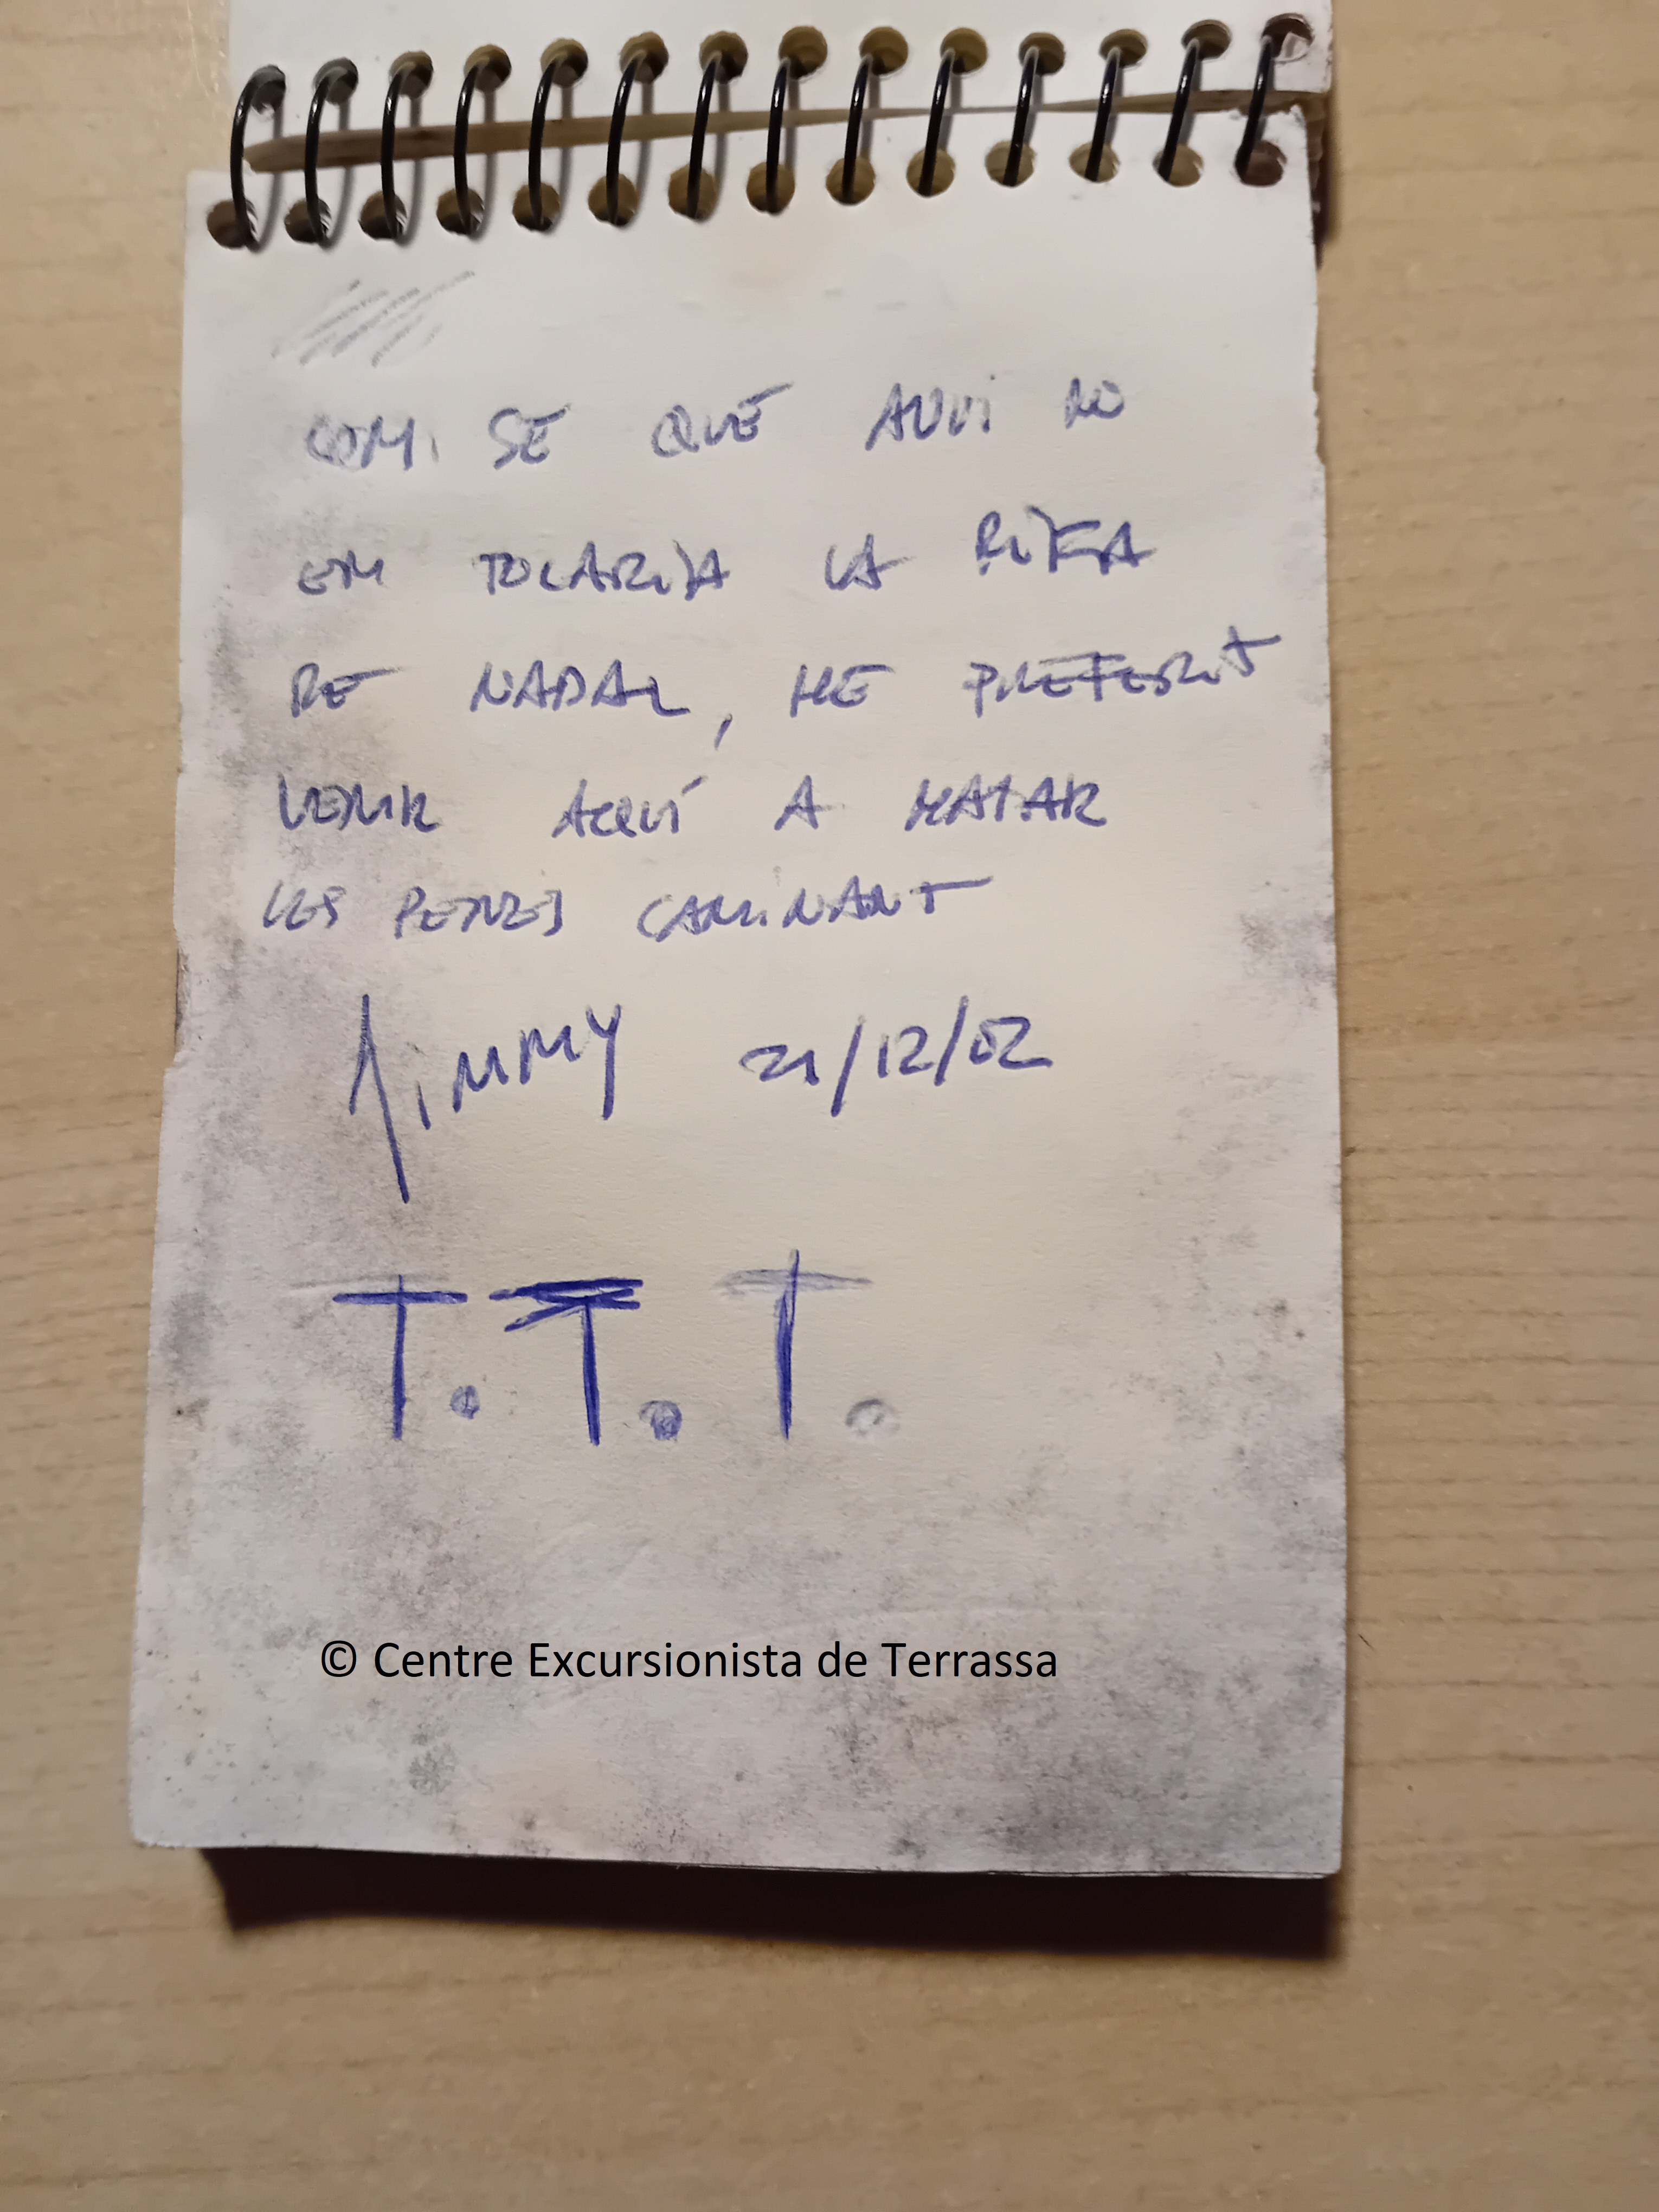 COM SE QUE AVUI NO
EM TOCARIA LA RIFA
DE NADAL, HE PREFERIT
VENIR AQUÍ A MATAR
LES PENES CAMINANT
JIMMY 21/12/02
T.T.T.
© Centre Excursionista de Terrassa